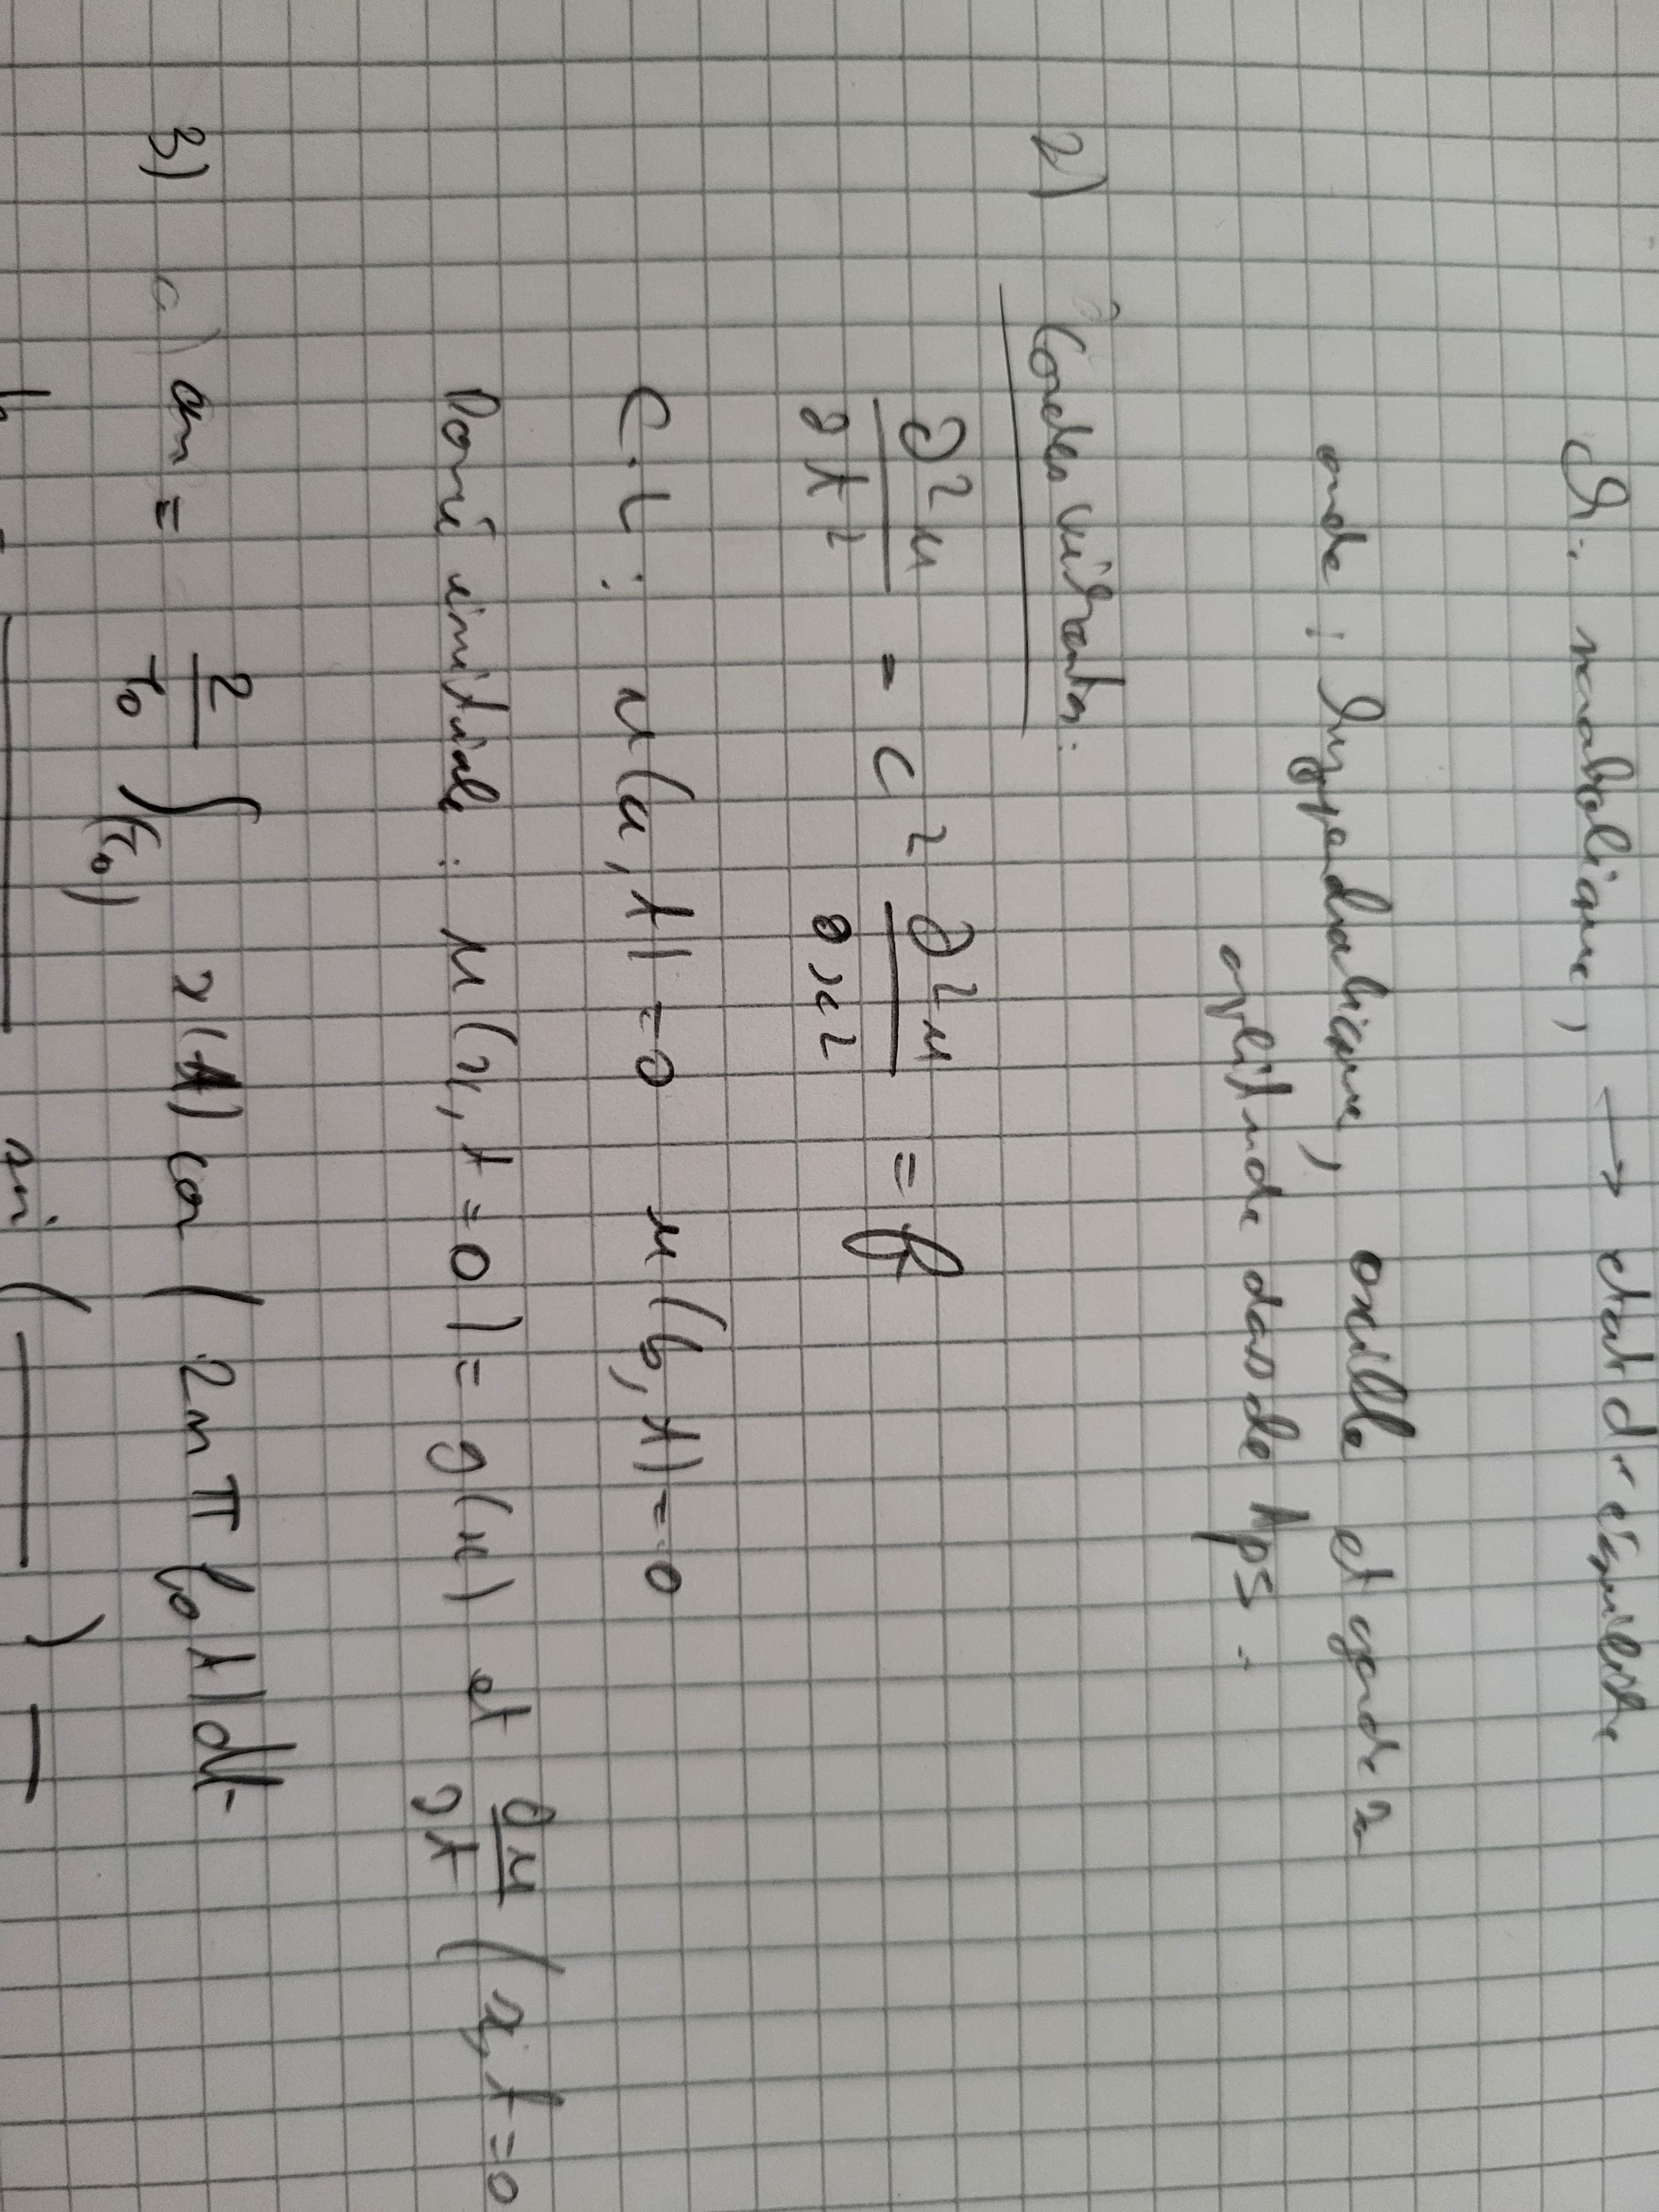 Ch. parabolique, → etat d'equilibre
onde : hyperbolique, oscille et garde sa
amplitude dans le tps.
2) Cordes vibrantes :
∂²u/∂t² - c² ∂²u/∂x² = f
C.L : u(a, t) = 0 u(b, t) = 0
Doné initiale : u(x, t=0) = g(x) et ∂u/∂t (x, t=0
3) a) an = 2/T0 ∫(T0) x(t) cos ( 2nπ f0 t) dt
b = —— sin ( —— ) —